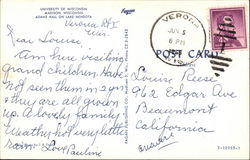 UNIVERSITY OF WISCONSIN
MADISON, WISCONSIN
ADAMS HALL ON LAKE MENDOTA
Verona,
Wis.
Dear Louise,
Am here visiting
grand children. Have
not seen them in 2 yrs
& they are all grown
up. A lovely family.
Weather hot very little
rain. Love Pauline
VERONA
JUN 5
6 PM
POST CARD
Louise Reese
962 Edgar Ave
Beaumont
California